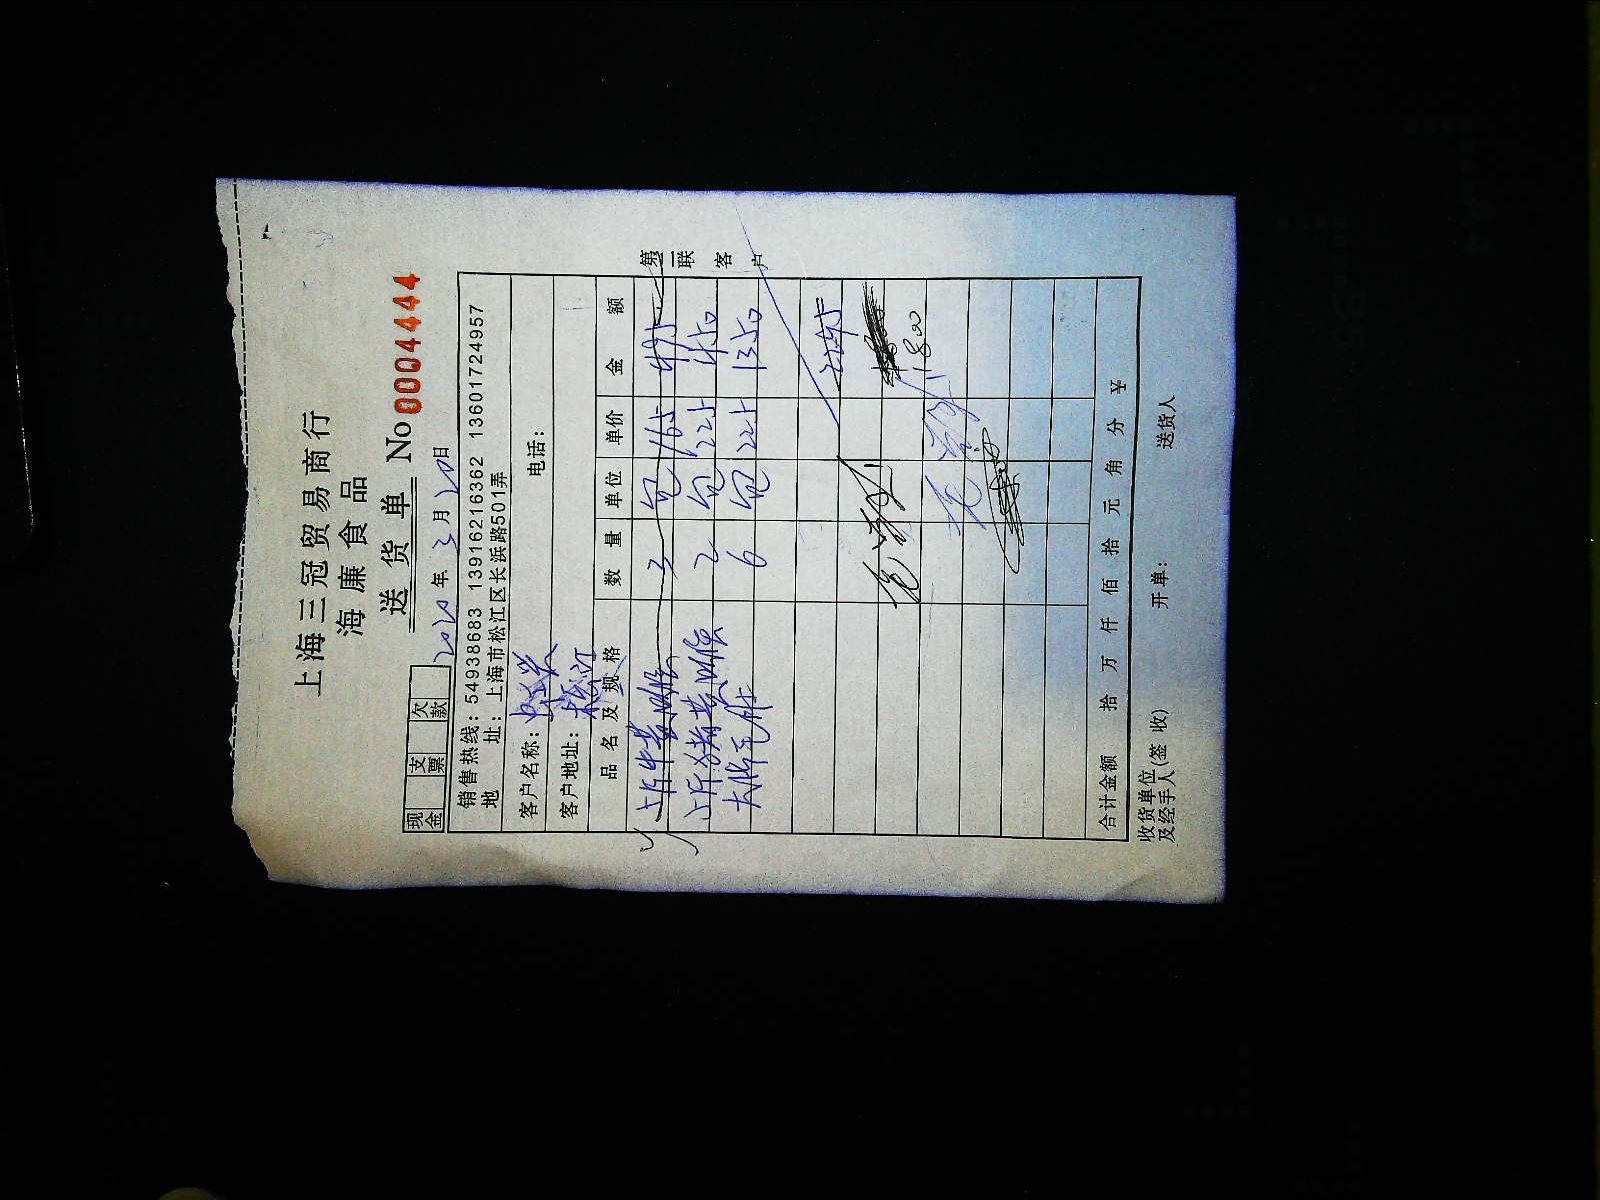 上海三冠贸易商行
海廉食品
送货单 No 0004444
现金 支票 欠款 2020年3月20日
销售热线: 54938683 13916216362 13601724957
地 址: 上海市松江区长浜路501弄
客户名称: 电话:
客户地址:
品名及规格 数量 单位 单价 金额
3 包 165 495
2 包 225 450
6 包 225 1350
2295
1800
合计金额 拾 万 仟 佰 拾 元 角 分 ¥
收货单位及经手人(签收) 开单: 送货人
第二联 客户